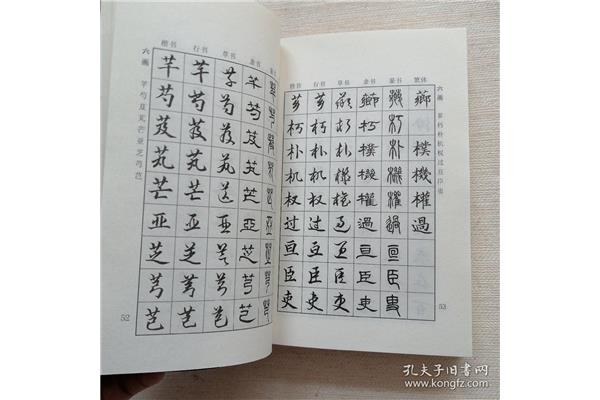 楷书 行书 草书 隶书
六画
芍芨芄芒亚芝芎芑
芍 芍 芍 芍
芨 芨 芨 芨
芄 芄 芄 芄
芒 芒 芒 芒
亚 亚 亚 亞
芝 芝 芝 芝
芎 芎 芎 芎
芑 芑 芑 芑
52
楷书 行书 草书 隶书 篆书 繁体
六画
芗朽朴机权过亘臣吏
芗 芗 薌 薌 薌 薌
朽 朽 朽 朽 朽
朴 朴 朴 樸 朴 樸
机 机 机 機 機 機
权 权 权 權 權 權
过 过 过 過 過 過
亘 亘 亘 亘 亘
臣 臣 臣 臣 臣
吏 吏 吏 吏 吏
53
孔夫子旧书网
www.kongfz.com